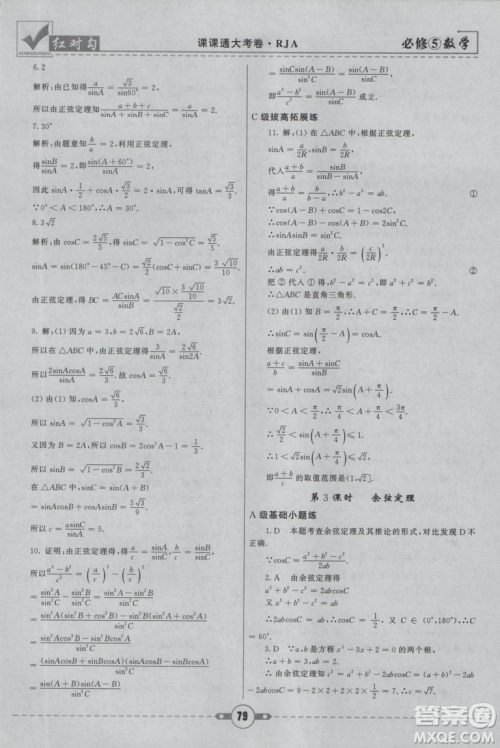 红对勾
课课通大考卷·RJA
必修⑤数学
6.2
解析：由已知得a/sinA=√3/sin60°=2.
所以由正弦定理，得(a+b+c)/(sinA+sinB+sinC)=a/sinA=2.
7.30°
解析：由题意知b/a=2，利用正弦定理，
得sinB/sinA=2，即sin(A+60°)/sinA=2.
因此sinA·1/2+√3/2·cosA=2sinA，可得tanA=√3/3.
∵0°<A<180°，∴A=30°.
8.3√2
解析：由cosC=2√5/5，得sinC=√(1-cos²C)=√5/5，
sinA=sin(180°-45°-C)=√2/2(cosC+sinC)=3√10/10.
由正弦定理，得BC=ACsinA/sinB=(√10×3√10/10)/(√2/2)=3√2.
9. 解：(1)因为a=3，b=2√6，B=2A，
所以在△ABC中，由正弦定理得3/sinA=2√6/sin2A.
所以2sinAcosA/sinA=2√6/3. 故cosA=√6/3.
(2)由(1)知cosA=√6/3，
所以sinA=√(1-cos²A)=√3/3.
又因为B=2A，所以cosB=2cos²A-1=1/3.
所以sinB=√(1-cos²B)=2√2/3.
在△ABC中，sinC=sin(A+B)=
sinAcosB+cosAsinB=5√3/9.
所以c=asinC/sinA=5.
10. 证明：由正弦定理，得
(a²-b²)/c²=(a/c)²-(b/c)²=
sin²A/sin²C-sin²B/sin²C=(sin²A-sin²B)/sin²C=
sin²A(sin²B+cos²B)-sin²B(sin²A+cos²A)/sin²C=
(sin²Acos²B-sin²Bcos²A)/sin²C=
(sinAcosB+cosAsinB)(sinAcosB-cosAsinB)/sin²C=
sin(A+B)sin(A-B)/sin²C=
sinCsin(A-B)/sin²C=sin(A-B)/sinC.
即(a²-b²)/c²=sin(A-B)/sinC成立.
C级拔高拓展练
11. 解：(1)在△ABC中，根据正弦定理，
sinA=a/2R，sinB=b/2R，
得 ∴b²-a²=ac ①
∵cos(A-B)+cosC=1-cos2C，
∴cos(A-B)-cos(A+B)=2sin²C.
∴sinAsinB=sin²C.
由正弦定理，得a/2R·b/2R=(c/2R)²
∴ab=c². ②
把②代入①得，b²-a²=
∴△ABC是直角三角形.
(2)由(1)知B=π/2，∴A+C=π/2，∴C=π/2-A.
∴sinC=sin(π/2-A)=cosA.
根据正弦定理，得(a+c)/b=(sinA+sinC)/sinB=
sinA+cosA=√2sin(A+π/4).
∵0<A<π/2，∴π/4<A+π/4<3π/4.
∴√2/2<sin(A+π/4)≤1.
∴1<√2sin(A+π/4)≤√2.
即(a+c)/b的取值范围是(1，√2].
第3课时 余弦定理
A级基础小题练
1. D 本题考查余弦定理及其推论的形式，对比发现D不
正确.
∵cosC=(a²+b²-c²)/2ab
2. A 由余弦定理得
a²+b²-c²=2abcosC
又∵a²+b²-c²=ab
∴2abcosC=ab，∴cosC=1/2，又∵C∈(0°，180°)，∴C=
60°.
3. D ∵a，b是方程x²-3x+2=0的两根，
∴a+b=3，ab=2，由余弦定理c²=a²+b²-2abcosC=(a+b)²-2ab
-2abcosC=9-2×2+2=7，∴c=√7.
79
答案圈